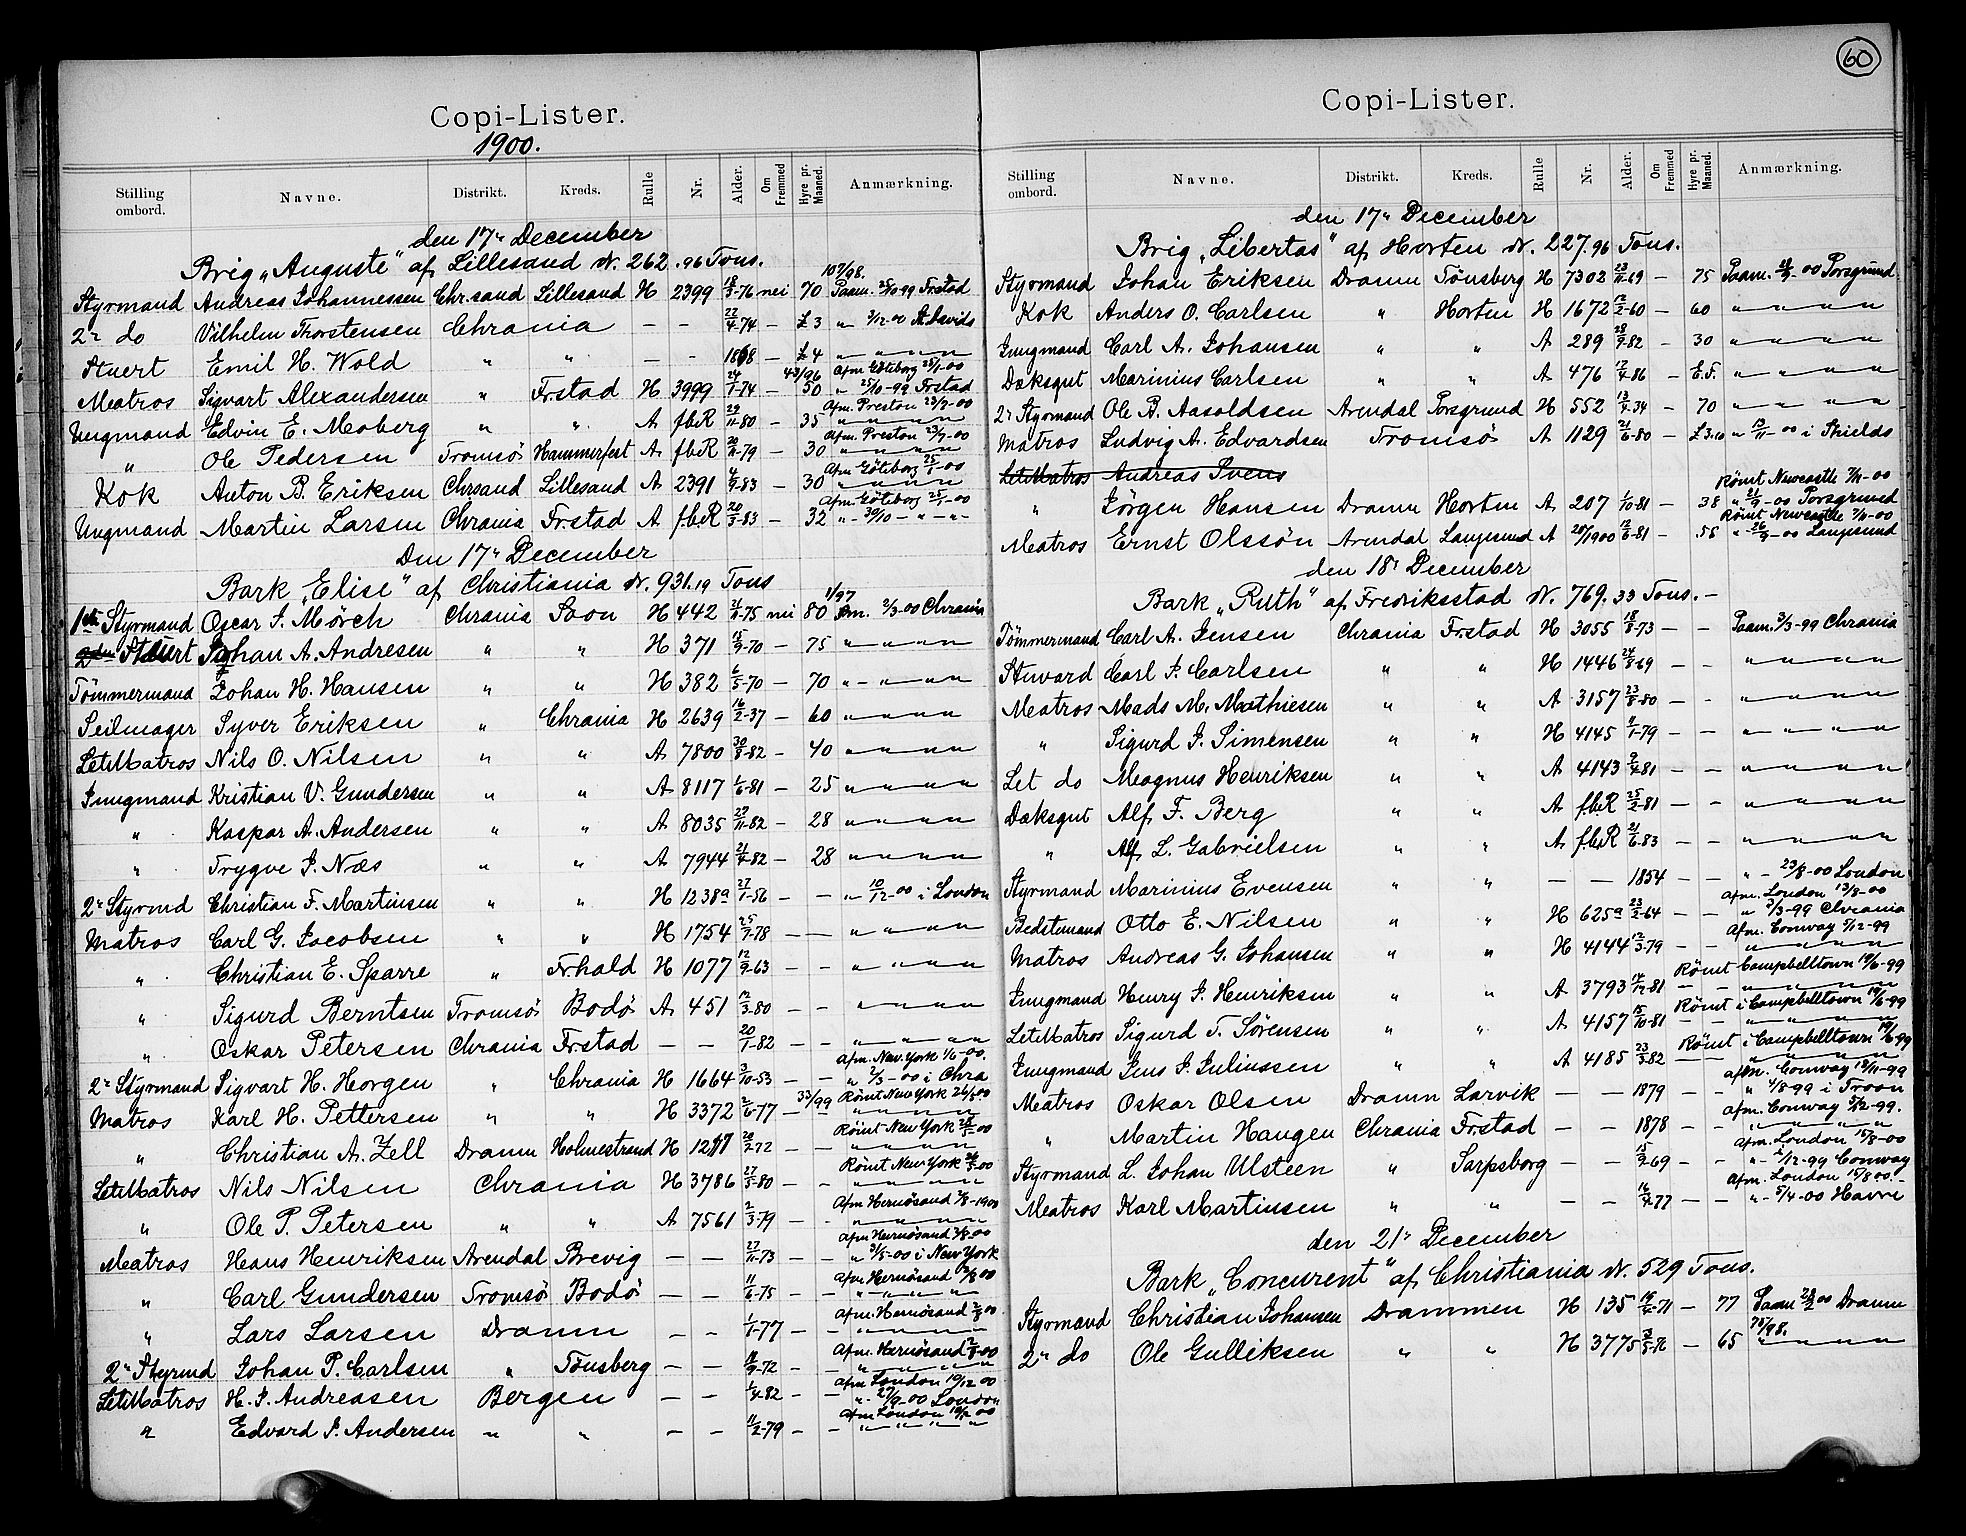 60
Copi-Lister.
1900.
Stilling ombord. Navne. Distrikt. Kreds. Rulle Nr. Alder. Om Fremmed Hyre pr. Maaned. Anmærkning.
den 17n December
Brig „Auguste" af Lillesand N. 262.96 Tons.
107/98.
Styrmand Andreas Johannessen Chr.sand Lillesand H 2399 18/3-76 nei 70 Paam. 25/10-99 Frstad
2n do Vilhelm Thorstensen Chrania — — 22/4-74 — £3 " 3/12 00 St. Davids
Stuert Emil H. Wold " " — — 1868 — £4 " " " "
43/96 Afm Göteborg 25/1-00
Matros Sigvart Alexandersen " Frstad H 3999 24/1-74 — 50 " 25/10-99 Frstad
Afm. Preston 23/7-00
Ungmand Edvin E. Moberg " " A fbR 29/11-80 — 35 " " " "
Afm. Preston 23/7-00
" Ole Pedersen Tromsö Hammerfest A fbR 20/11-79 — 30 " " " "
Afm Göteborg 25/1-00
Kok Anton B. Eriksen Chrsand Lillesand A 2391 4/9-83 — 30 " " " "
Afm. Göteborg 25/1-00
Ungmand Martin Larsen Chrania Fr.stad A f.b.R 20/3-83 — 32 " - 30/10 - " - "
Den 17n December
Bark „Elise" af Christiania N. 931.19 Tons
1/97
1ste Styrmand Oscar J. Mörch Chrania Soon H 442 2/11-75 nei 80 Pm. 2/3-00 Chrania
Stuert Johan A. Andresen " " H 371 15/9-70 — 75 " " " "
Tömmermand Johan H. Hansen " " H 382 6/5-70 — 70 " " " "
Seilmager Syver Eriksen " Chrania H 2639 16/2-37 — 60 " " " "
LetMatros Nils O. Nilsen " " A 7800 30/8-82 — 40 " " " "
Jungmand Kristian V. Gundersen " " A 8117 1/6-81 — 25 " " " "
" Kaspar A. Andersen " " A 8035 27/11-82 — 28 " " " "
" Trygve J. Næs " " A 7944 21/4-82 — 28 " " " "
2n Styrmd Christian F. Martinsen " " H 1238a 27/1-56 — — " 10/12-00 i London
Matros Carl G. Jacobsen " " H 1754 25/7-78 — — " " " "
" Christian E. Sparre " Frhald H 1077 12/9-63 — — " " " "
" Sigurd Berntsen Tromsö Bodö A 451 12/3-80 — — " " " "
" Oskar Petersen Chrania Frstad — — 20/1-82 — — " " " "
Afm. New York 1/6-00.
2n Styrmand Sigvart H. Horgen " Chrania H 1664 3/10-53 — — " 2/3-00 i Chra
33/99 Römt New York 26/5 00
Matros Karl H. Pettersen " " H 3372 2/6-77 — " " " "
Römt New York 00
" Christian A. Zell Dramn Holmestrand H 1217 20/2-72 — — " " " "
Römt New York 00
LetMatros Nils Nilsen Chrania H 3786 27/5-80 — — " " " "
Afm Hernösand 2/8-1900
" Ole P. Petersen " " A 7561 2/3-79 — — " " " "
Afm Hernösand 2/8-00
Matros Hans Henriksen Arendal Brevig — — 27/11-73 — " 3/5-00 i New York
Afm. Hernösand 2/8 00
" Carl Gundersen Tromsö Bodö — — 11/6-75 — — " " " "
Afm. Hernösand 2/8 00
" Lars Larsen Dramn — — 1/1-77 — — " " " "
Afm. Hernösand 00
2n Styrmd Johan P. Carlsen " Tönsberg — — 18/9-72 — — " " " "
Afm London 10/12 00
LetMatros H. J. Andreasen Bergen — — 1/4-82 — — " 27/9-00 London
Afm London 10/12 00
" Edvard J. Andersen " " — — 11/2-79 — — " " " "
Copi-Lister.
Stilling ombord. Navne. Distrikt. Kreds. Rulle Nr. Alder. Om Fremmed Hyre pr. Maaned. Anmærkning.
den 17n December
Brig „Libertas" af Horten N. 227.96 Tons.
Styrmand Johan Eriksen Dramn Tönsberg H 7302 23/11-69 — 75 Paam. 21/9-00 Porsgrund
Kok Anders O. Carlsen " Horten H 1672 12/2-60 — 60 " " " "
Jungmand Carl A. Johansen " " A 289 28/9-82 — 30 " " " "
Dæksgut Marinius Carlsen " " A 476 12/4-86 — E.F. " " " "
2n Styrmand Ole B. Aasoldsen Arendal Porsgrund H 552 13/4-34 — 70 " " " "
Matros Ludvig A. Edvardsen Tromsö A 1129 21/6-80 — £3.10 " 13/11-00 i Shields
LetMatros Andreas Svens
Römt Newcastle 7/11-00
" Jörgen Hansen Dramn Horten A 207 1/10-81 — 38 " 21/9-00 Porsgrund
Römt Newcastle 7/11-00
Matros Ernst Olssön Arendal Langesund A 28/1900 12/6-81 — 55 " 26/9-00 Langesund
den 18n December
Bark „Ruth" af Fredriksstad N. 769.33 Tons. —
Tömmermand Carl A. Jensen Chrania Frstad H 3055 18/8-73 — — Paam. 3/3-99 Chrania
Stuvard Carl J. Carlsen " " H 1446 24/8-69 — — " " " "
Matros Mads M. Mathiesen " " A 3157 23/8-80 — — " " " "
" Sigurd J. Simensen " " H 4145 4/1-79 — — " " " "
Let do Magnus Henriksen " " A 4143 9/4-81 — — " " " "
Dæksgut Alf F. Berg " " A f.b.R 25/2-81 — — " " " "
" Alf L. Gabrielsen " " A f.b.R 21/6-83 — — " " " "
Styrmand Marinius Evensen " " — — 1854 — — " - 23/8-00 London
Afm. London 13/8-00
Bedstemand Otto E. Nilsen " " H 625a 23/2-64 — — " 3/3-99 Chrania
Afm. Conway 5/12-99
Matros Andreas G. Johansen " " H 4144 12/3-79 — — " " " "
Römt Campbelltown 19/6-99
Jungmand Henry J. Henriksen " " A 3793 14/12-81 — — " " " "
Römt i Campbelltown 19/6-99
LetMatros Sigurd T. Sörensen " " A 4157 15/10-81 — — " " " "
Römt i Campbelltown 19/6-99
Jungmand Jens J. Juliussen " " A 4185 23/3-82 — — " " " "
afm. Conway 18/11-99
Matros Oskar Olsen Dramn Larvik — — 1879 — — " 4/8-99 i Troon
afm. Conway 5/12-99.
" Martin Haugen Chrania Frstad — — 1878 — — " " " "
Afm. London 15/8-00
Styrmand L. Johan Ulsteen " Sarpsborg — — 15/9-69 — — " - 2/12-99 Conway
Afm. London 15/8 00.
Matros Karl Martinsen " " — — 16/4-77 — — " - 5/4-00 Havre
den 21n December
Bark „Concurent" af Christiania N. 529 Tons.
Styrmand Christian Johansen Drammen H 135 19/4-71 — 77 Paam 28/2 00 Dramn
78/98.
2n do Ole Gulliksen " " H 3775 — 65 " " " "